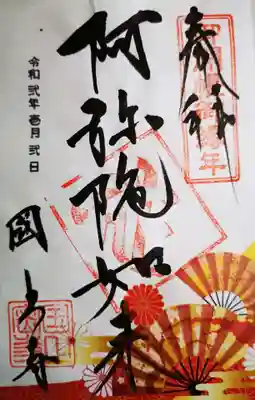 奉拝
阿弥陀如来
國上寺
令和弐年壱月弐日